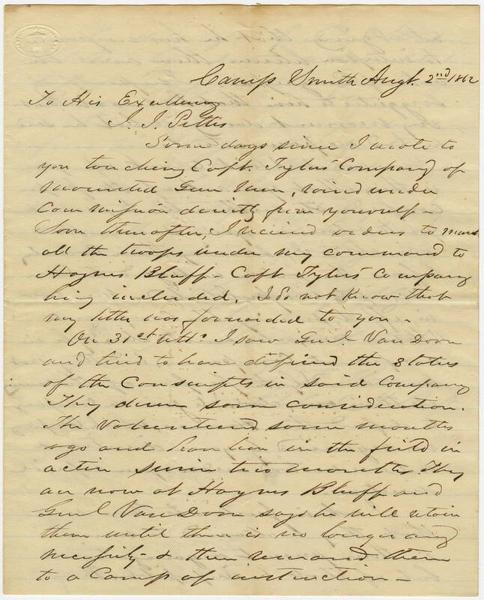 Camp Smith Augt. 2nd 1862
To His Excellency
J. J. Pettus
Some days since I wrote to
you touching Capt. Tylers Company of
mounted Gun men, raised under
commission directly from yourself -
Soon thereafter, I received orders to move
all the troops under my command to
Haynes Bluff - Capt Tylers Company
being included. I do not know that
my letter was forwarded to you -
On 31st ulto. I saw Genl Van Dorn
and tried to have defined the status
of the Conscripts in said Company
They deserve some consideration.
The volunteered some months
ago and have been in the field in
active service two months They
are now at Haynes Bluff and
Genl Van Dorn says he will retain
them until there is no longer any
necessity - & then remand them
to a Camp of instruction -